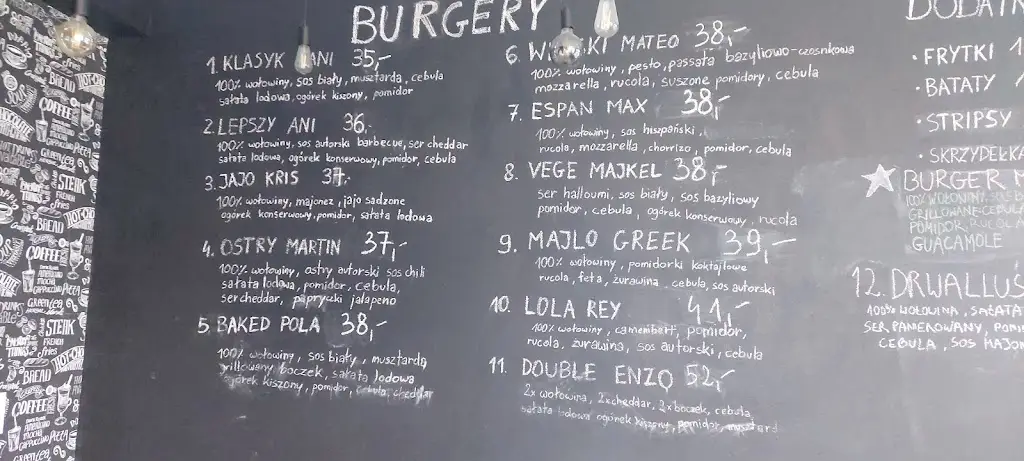 BURGERY
1. KLASYK ANI 35,-
100% wołowiny, sos biały, musztarda, cebula
sałata lodowa, ogórek kiszony, pomidor
2. LEPSZY ANI 36,
100% wołowiny, sos autorski barbecue, ser cheddar
sałata lodowa, ogórek konserwowy, pomidor, cebula
3. JAJO KRIS 37,-
100% wołowiny, majonez, jajo sadzone
ogórek konserwowy, pomidor, sałata lodowa
4. OSTRY MARTIN 37,-
100% wołowiny, ostry autorski sos chili
sałata lodowa, pomidor, cebula,
ser cheddar, papryczki jalapeno
5. BAKED POLA 38,-
100% wołowiny, sos biały, musztarda
grillowany boczek, sałata lodowa
ogórek kiszony, pomidor, cebula, cheddar
6. MATEO 38,-
100% wołowiny, pesto, passata bazyliowo-czosnkowa
mozzarella, rucola, suszone pomidory, cebula
7. ESPAN MAX 38,-
100% wołowiny, sos hiszpański,
rucola, mozzarella, chorrizo, pomidor, cebula
8. VEGE MAJKEL 38,-
ser halloumi, sos biały, sos bazyliowy
pomidor, cebula, ogórek konserwowy, rucola
9. MAJLO GREEK 39,-
100% wołowiny, pomidorki koktajlowe
rucola, feta, żurawina, cebula, sos autorski
10. LOLA REY 41,-
100% wołowiny, camembert, pomidor,
rucola, żurawina, sos autorski, cebula
11. DOUBLE ENZO 52,-
2x wołowina, 2x cheddar, 2x boczek, cebula
sałata lodowa ogórek kiszony, pomidor, musztard
DODATK
• FRYTKI 1
• BATATY
• STRIPSY
• SKRZYDEŁKA
BURGER M
100% WOŁOWINY, SOS B
GRILLOWANE CEBULA
POMIDOR, RUCOLA
GUACAMOLE
12. DRWALLUŚ
100% WOŁOWINY, SAŁATA
SER PANIEROWANY, POMI
CEBULA, SOS MAJON
COFFEE
BREAD
STEAK
FRENCH
fries
HOT
COFFEE
BREAD
STEAK
BREAD
COFFEE
PIZZA